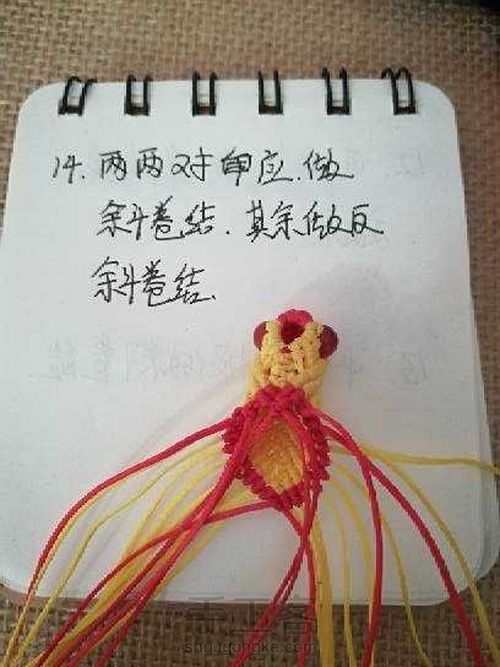 14. 两两对应.做
斜卷结.其余做反
斜卷结.
shougongke.com